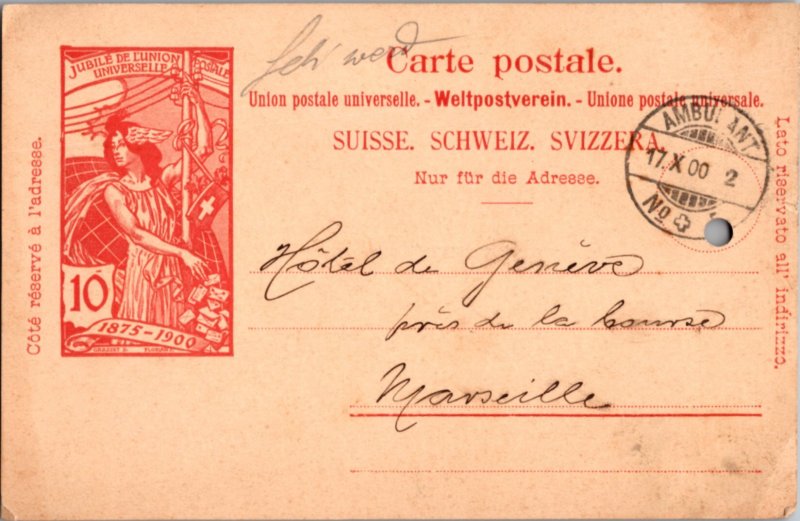 JUBILÉ DE L'UNION
UNIVERSELLE POSTALE
10
1875-1900
Carte postale.
Union postale universelle. - Weltpostverein. - Unione postale universale.
SUISSE. SCHWEIZ. SVIZZERA.
Nur für die Adresse.
Côté réservé à l'adresse.
Lato riservato all' indirizzo.
AMBULANT
17.X 00 2
No
Hôtel de Genève
près de la bourse
Marseille